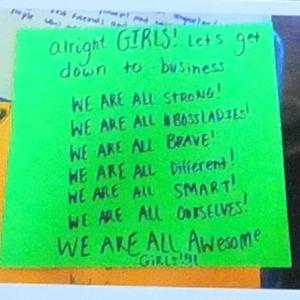 alright GIRLS! Lets get
down to business.
WE ARE ALL STRONG!
WE ARE ALL #BOSSLADIES!
WE ARE ALL BRAVE!
WE ARE ALL Different!
WE ARE ALL SMART!
WE ARE ALL OURSELVES!
WE ARE ALL Awesome
GIRLS!!!!